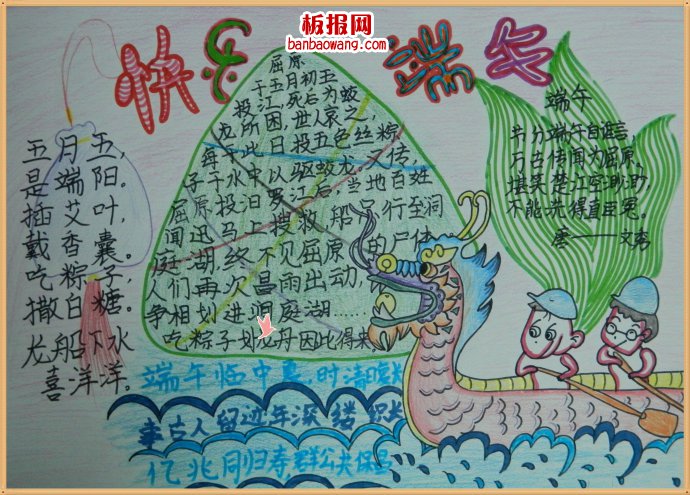 板报网
banbaowang.com
快乐 端午
五月五,
是端阳。
插艾叶,
戴香囊。
吃粽子,
撒白糖。
龙船下水
喜洋洋。
屈原
于五月初五
投江死后为蛟
龙所困,世人哀之,
每于此日投五色丝粽
子于水中以驱蛟龙。又传,
屈原投汨罗江后,当地百姓
闻讯马上搜救船只行至洞
庭湖,终不见屈原的尸体。
人们再次冒雨出动,
争相划进洞庭湖……
吃粽子划龙舟因此得来
端午
节分端午自谁言,
万古传闻为屈原。
堪笑楚江空渺渺,
不能洗得直臣冤。
唐——文秀
端午临中夏,时清
古人留迹年深缕
亿兆同归寿,群公共保